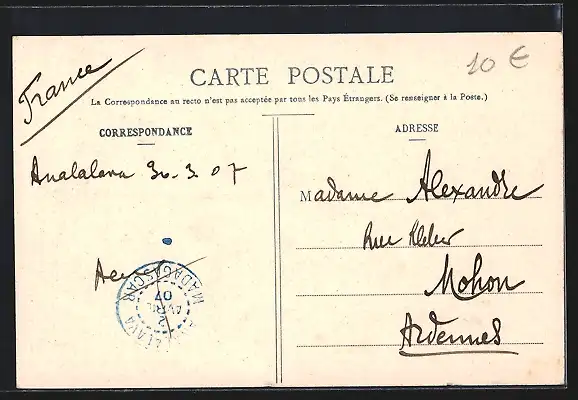 France
10 €
CARTE POSTALE
La Correspondance au recto n'est pas acceptée par tous les Pays Étrangers. (Se renseigner à la Poste.)
CORRESPONDANCE
Analalava 30. 3. 07
MADAGASCAR
2
AVRIL
07
ANALALAVA
ADRESSE
Madame Alexandre
Rue Kleber
Mohon
Ardennes